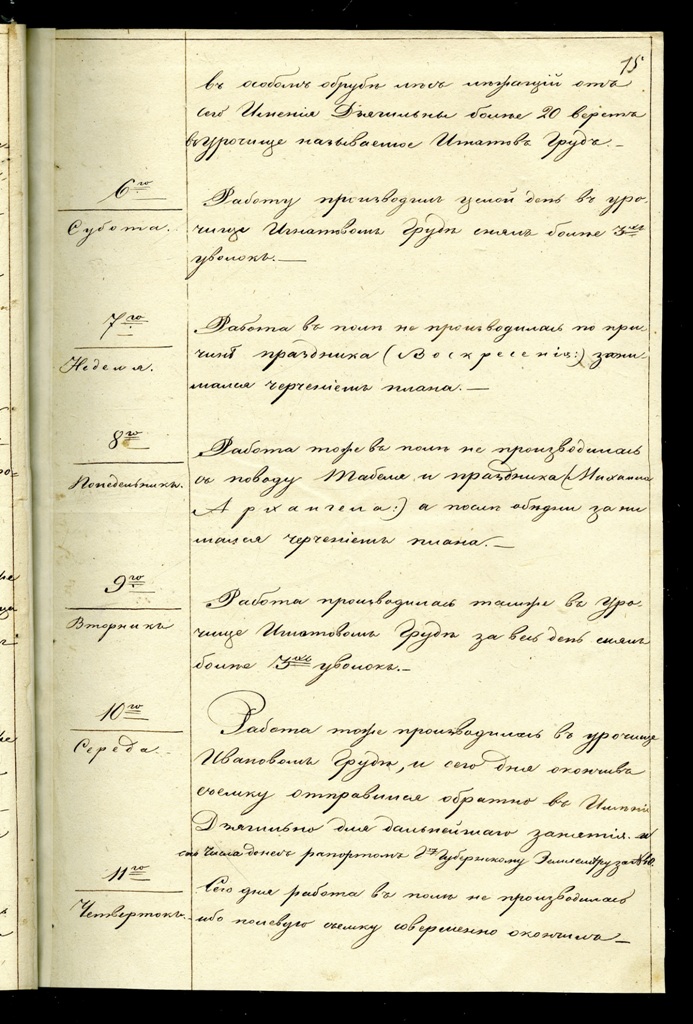 15
въ особомъ обрубѣ лѣсъ лѣжащій отъ
сего Имѣнія Дзягильны болѣе 20 верстъ
въ урочище называемое Игнатовъ Грудъ.—
6го
Субота.
Работу производилъ целой день въ уро-
чище Игнатовомъ Грудѣ снялъ болѣе 3хъ
уволокъ.—
7го
Неделя.
Работа въ полѣ не производилась по при-
чинѣ праздника (Воскресенія:) зани-
мался черченіемъ плана.—
8го
Понедельникъ.
Работа тоже въ полѣ не производилась
съ поводу Табеля и праздника (Михаила
Архангела:) а послѣ обѣдни зани
мался черченіемъ плана.—
9го
Вторникъ
Работа производилась также въ уро-
чище Игнатовомъ Грудѣ за весь день снялъ
болѣе 3хъ уволокъ.—
10го
Середа.
Работа тоже производилась въ урочище
Ивановомъ Грудѣ, и сего дня окончивъ
съемку отправился обратно въ Имѣніе
Дзягильно для дальнейшаго занятія. и
сего числа донесъ рапортомъ Гну Губернскому Землемѣру за №10.
11го
Четвертокъ.
Сего дня работа въ полѣ не производилась
ибо полевую съемку совершенно окончилъ—